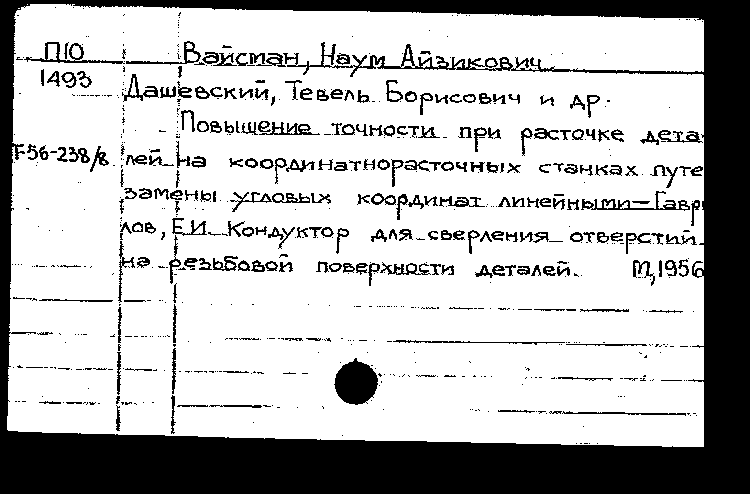 П10 Вайсман, Наум Айзикович
1493 Дашевский, Тевель Борисович и др.
Повышение точности при расточке дета
Г56-238/8 лей на координатнорасточных станках путе
замены угловых координат линейными—Гавр
лов, Е.И. Кондуктор для сверления отверстий
на резьбовой поверхности деталей. М, 1956